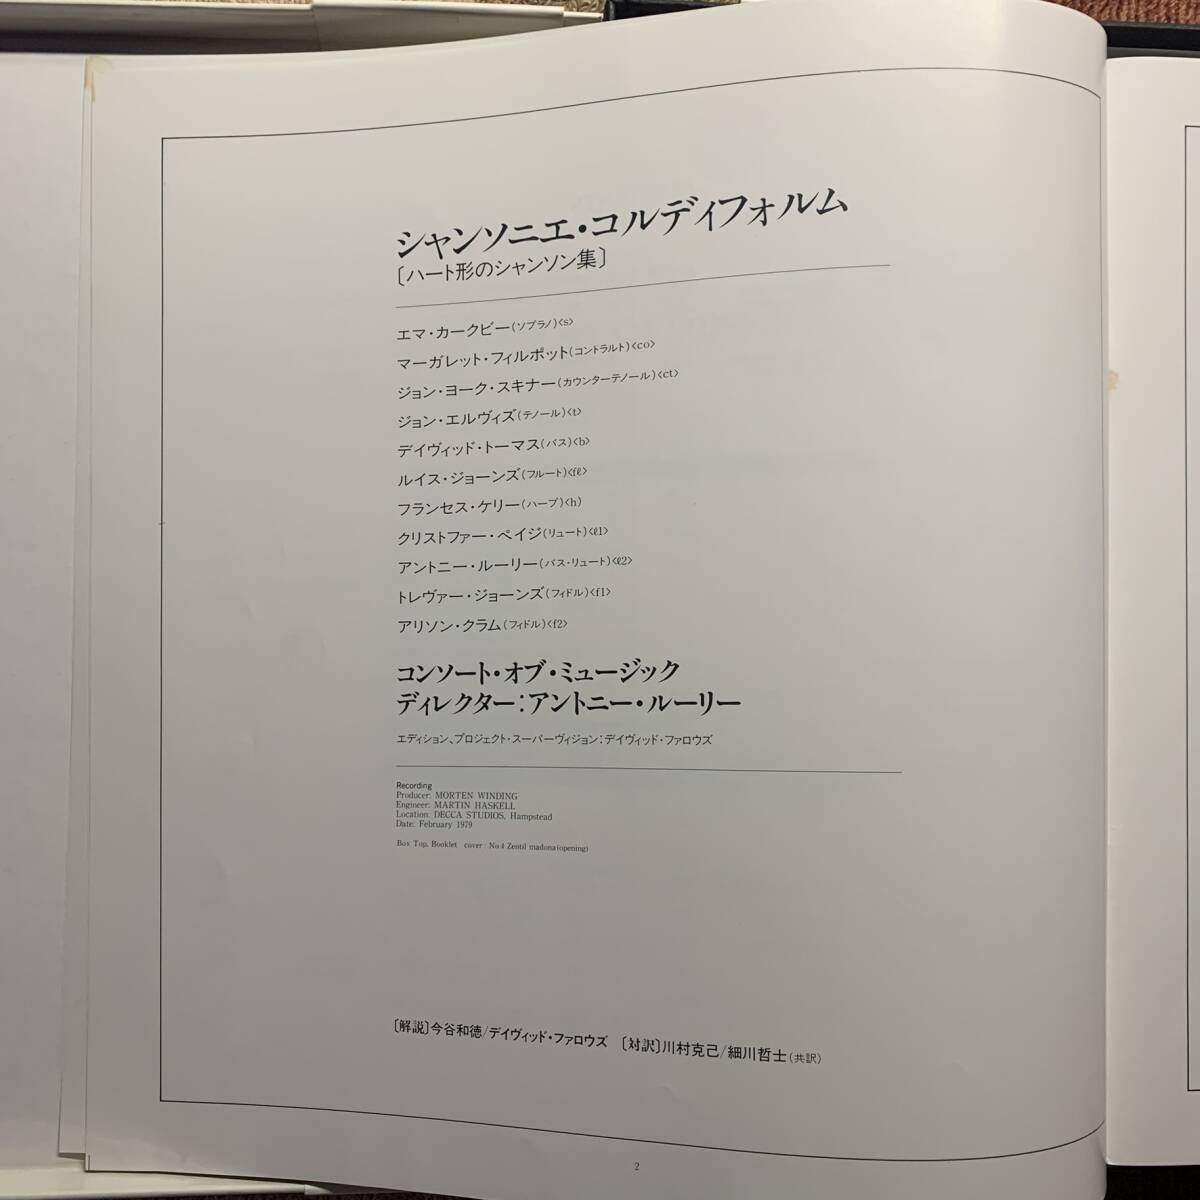 シャンソニエ・コルディフォルム
〔ハート形のシャンソン集〕
エマ・カークビー(ソプラノ)〈s〉
マーガレット・フィルポット(コントラルト)〈co〉
ジョン・ヨーク・スキナー(カウンターテノール)〈ct〉
ジョン・エルヴィズ(テノール)〈t〉
デイヴィッド・トーマス(バス)〈b〉
ルイス・ジョーンズ(フルート)〈fℓ〉
フランセス・ケリー(ハープ)〈h〉
クリストファー・ペイジ(リュート)〈ℓ1〉
アントニー・ルーリー(バス・リュート)〈ℓ2〉
トレヴァー・ジョーンズ(フィドル)〈f1〉
アリソン・クラム(フィドル)〈f2〉
コンソート・オブ・ミュージック
ディレクター：アントニー・ルーリー
エディション、プロジェクト・スーパーヴィジョン：デイヴィッド・ファロウズ
Recording
Producer: MORTEN WINDING
Engineer: MARTIN HASKELL
Location: DECCA STUDIOS, Hampstead
Date: February 1979
Box Top, Booklet cover : No.4 Zentil madona (opening)
〔解説〕今谷和徳/デイヴィッド・ファロウズ 〔対訳〕川村克己/細川哲士(共訳)
2